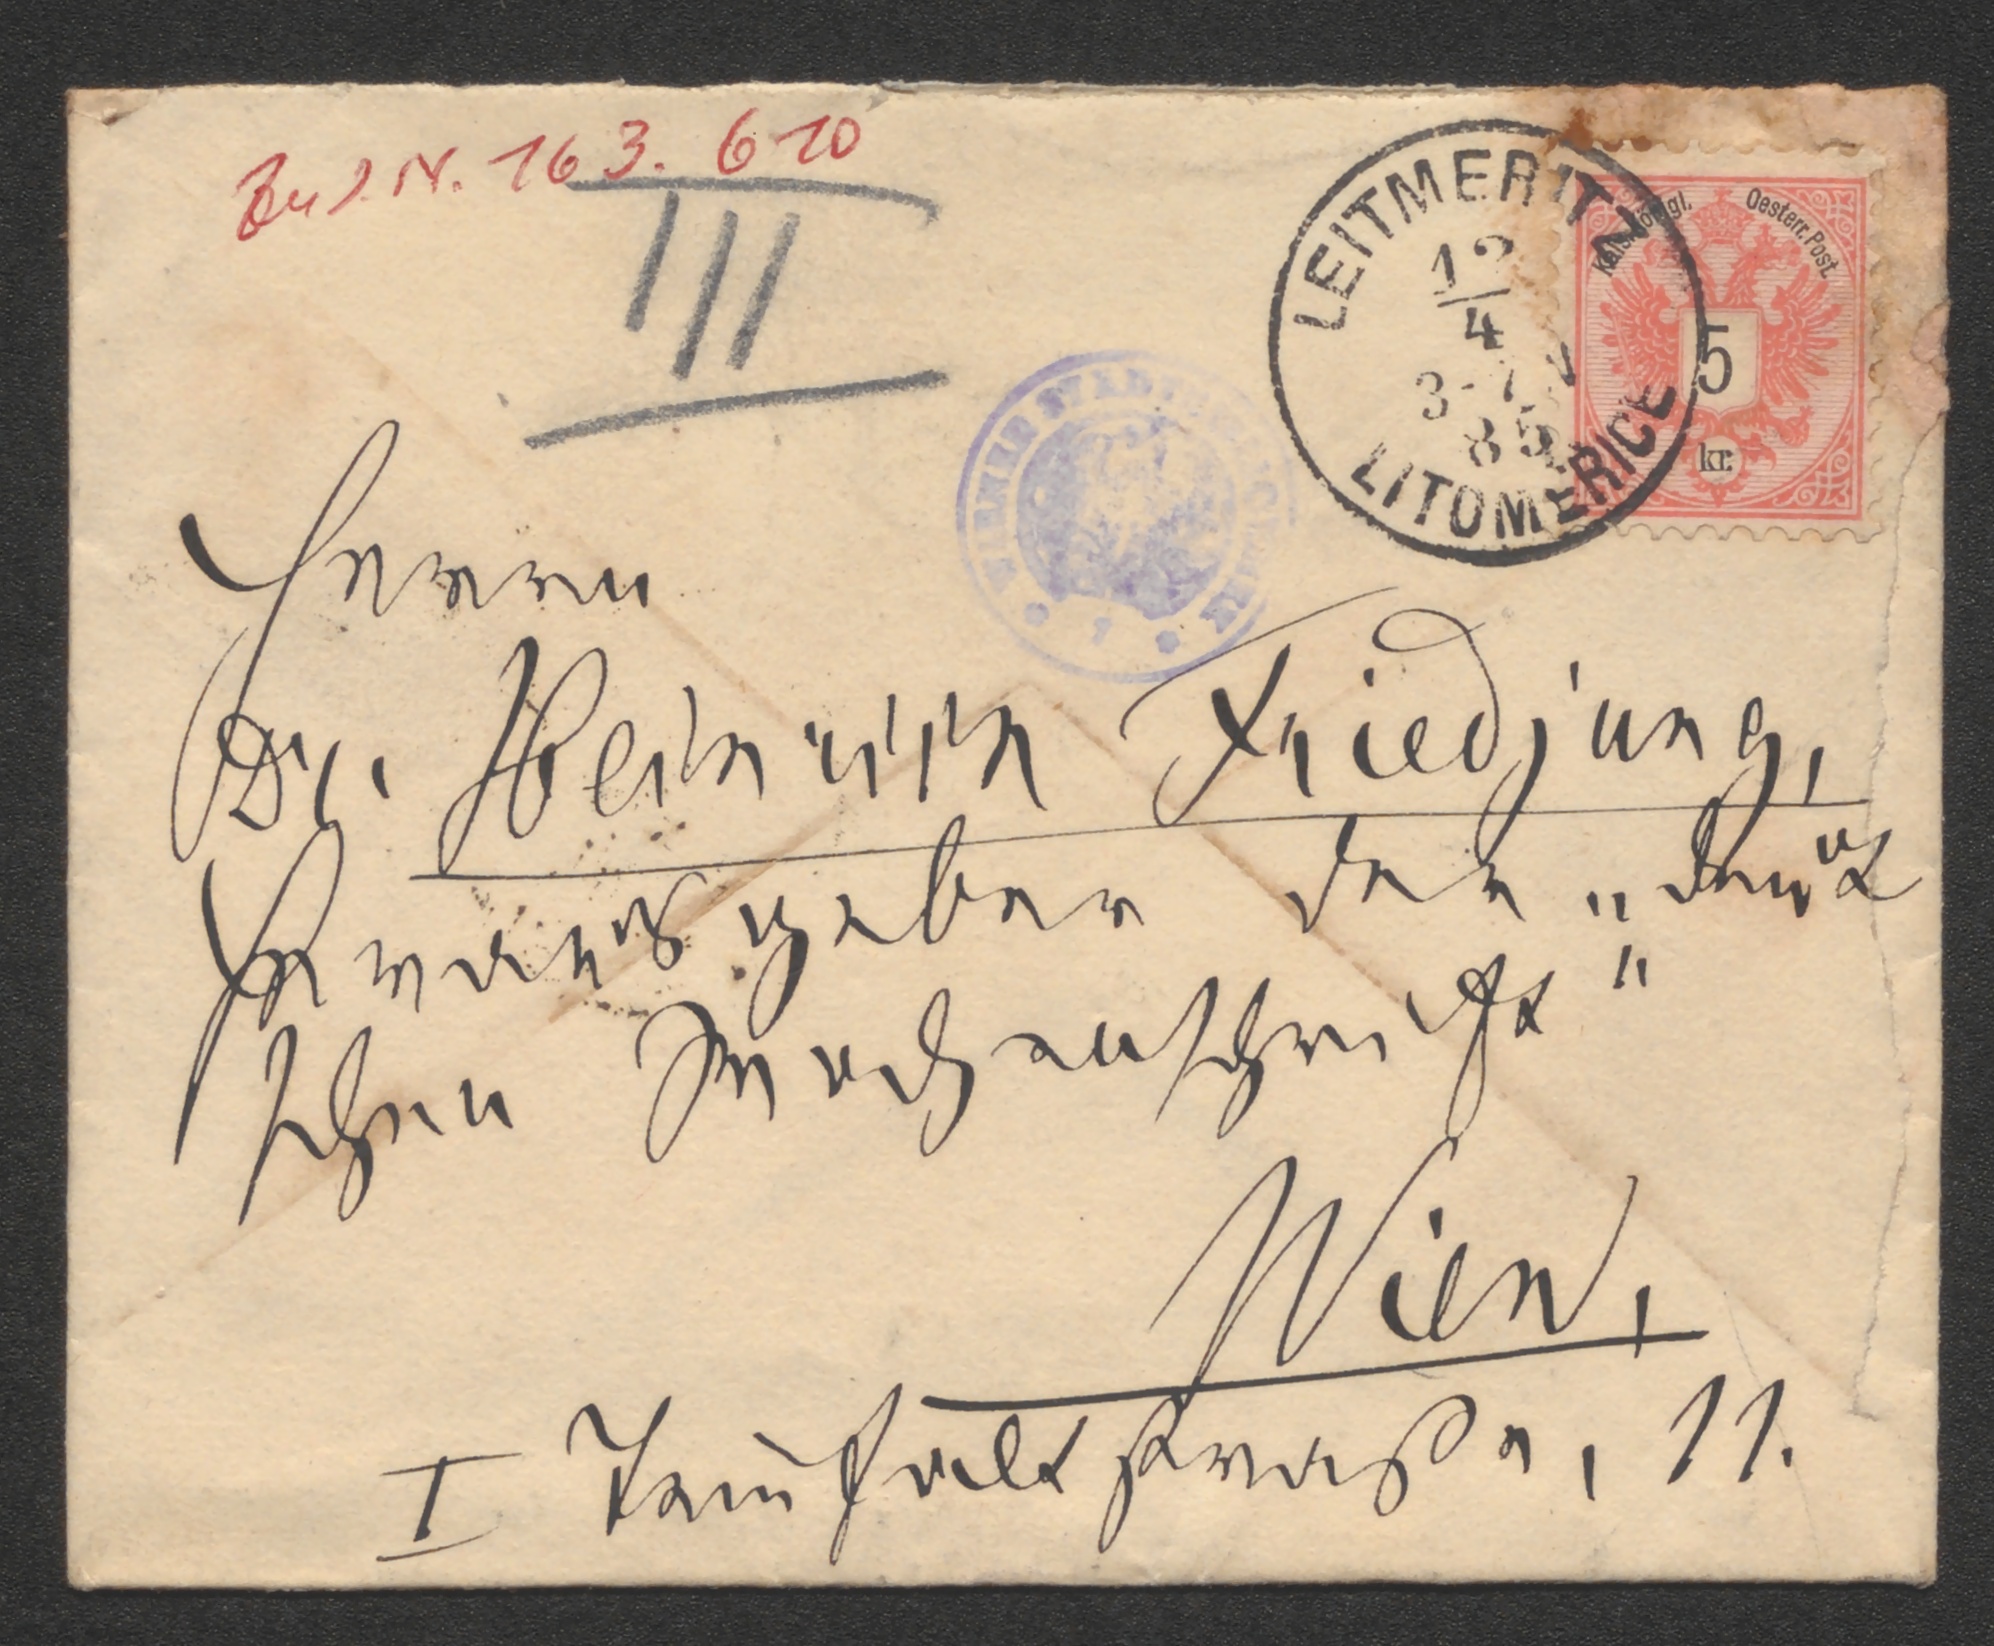 Zu I.N. 163.610
III
LEITMERITZ
12
4
3-7
85
LITOMERICE
Kais. Königl. Oesterr. Post.
5
kr.
WIENER STÄDTISCHE
Herrn
Dr. Heinrich Friedjung,
Herausgeber der „Deut
schen Wochenschrift"
Wien,
I Teinfaltstraße, 11.